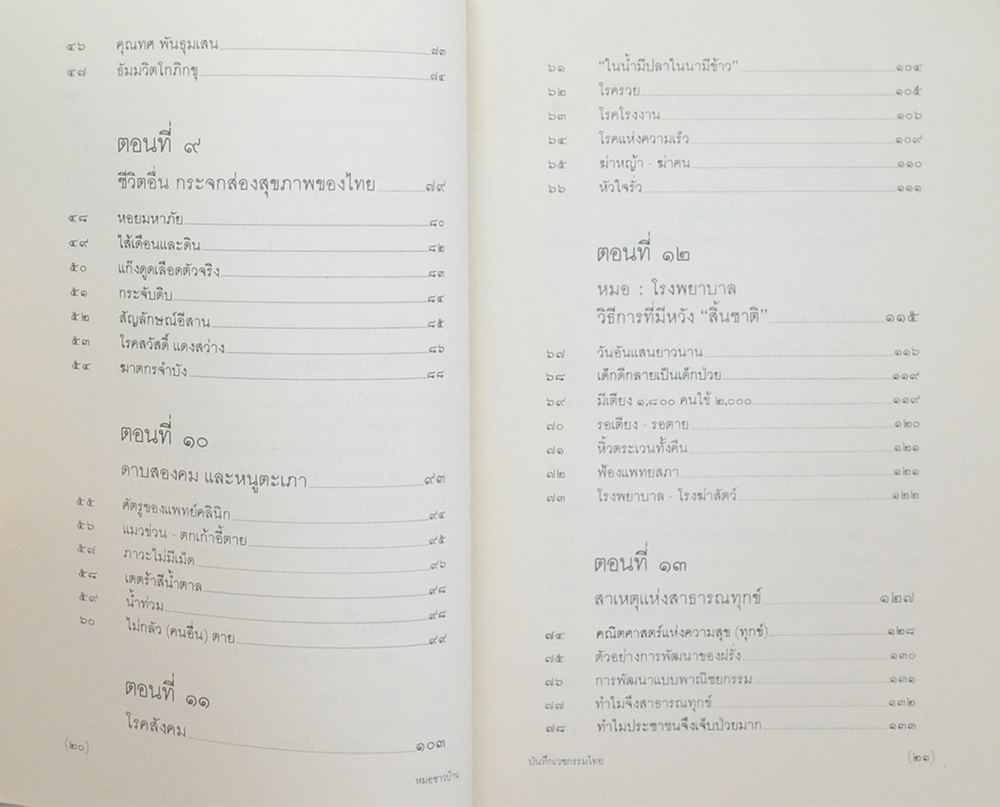 ๔๖ คุณทศ พันธุมเสน ๗๓
๔๗ ธัมมวิตโกภิกขุ ๗๔
ตอนที่ ๙
ชีวิตอื่น กระจกส่องสุขภาพของไทย ๗๙
๔๘ หอยมหาภัย ๘๐
๔๙ ไส้เดือนและดิน ๘๒
๕๐ แก๊งดูดเลือดตัวจริง ๘๓
๕๑ กระจับดิบ ๘๔
๕๒ สัญลักษณ์อีสาน ๘๕
๕๓ โรคสวัสดิ์ แดงสว่าง ๘๖
๕๔ ฆาตกรจำบัง ๘๘
ตอนที่ ๑๐
ดาบสองคม และหนูตะเภา ๙๓
๕๕ ศัตรูของแพทย์คลินิก ๙๔
๕๖ แมวข่วน - ตกเก้าอี้ตาย ๙๕
๕๗ ภาวะไม่มีเม็ด ๙๖
๕๘ เตตร้าสีน้ำตาล ๙๘
๕๙ น้ำท่วม ๙๘
๖๐ ไม่กลัว (คนอื่น) ตาย ๙๙
ตอนที่ ๑๑
โรคสังคม ๑๐๓
(๒๐)
หมอชาวบ้าน
๖๑ "ในน้ำมีปลาในนามีข้าว" ๑๐๔
๖๒ โรครวย ๑๐๕
๖๓ โรคโรงงาน ๑๐๖
๖๔ โรคแห่งความเร็ว ๑๐๙
๖๕ ฆ่าหญ้า - ฆ่าคน ๑๑๐
๖๖ หัวใจรั่ว ๑๑๑
ตอนที่ ๑๒
หมอ : โรงพยาบาล
วิธีการที่มีหวัง "สิ้นชาติ" ๑๑๕
๖๗ วันอันแสนยาวนาน ๑๑๖
๖๘ เด็กดีกลายเป็นเด็กป่วย ๑๑๙
๖๙ มีเตียง ๑,๘๐๐ คนไข้ ๒,๐๐๐ ๑๑๙
๗๐ รอเตียง - รอตาย ๑๒๐
๗๑ หิ้วตระเวนทั้งคืน ๑๒๑
๗๒ ฟ้องแพทยสภา ๑๒๑
๗๓ โรงพยาบาล - โรงฆ่าสัตว์ ๑๒๒
ตอนที่ ๑๓
สาเหตุแห่งสาธารณทุกข์ ๑๒๗
๗๔ คณิตศาสตร์แห่งความสุข (ทุกข์) ๑๒๘
๗๕ ตัวอย่างการพัฒนาของฝรั่ง ๑๓๐
๗๖ การพัฒนาแบบพาณิชยกรรม ๑๓๑
๗๗ ทำไมจึงสาธารณทุกข์ ๑๓๒
๗๘ ทำไมประชาชนจึงเจ็บป่วยมาก ๑๓๓
บันทึกเวชกรรมไทย
(๒๑)